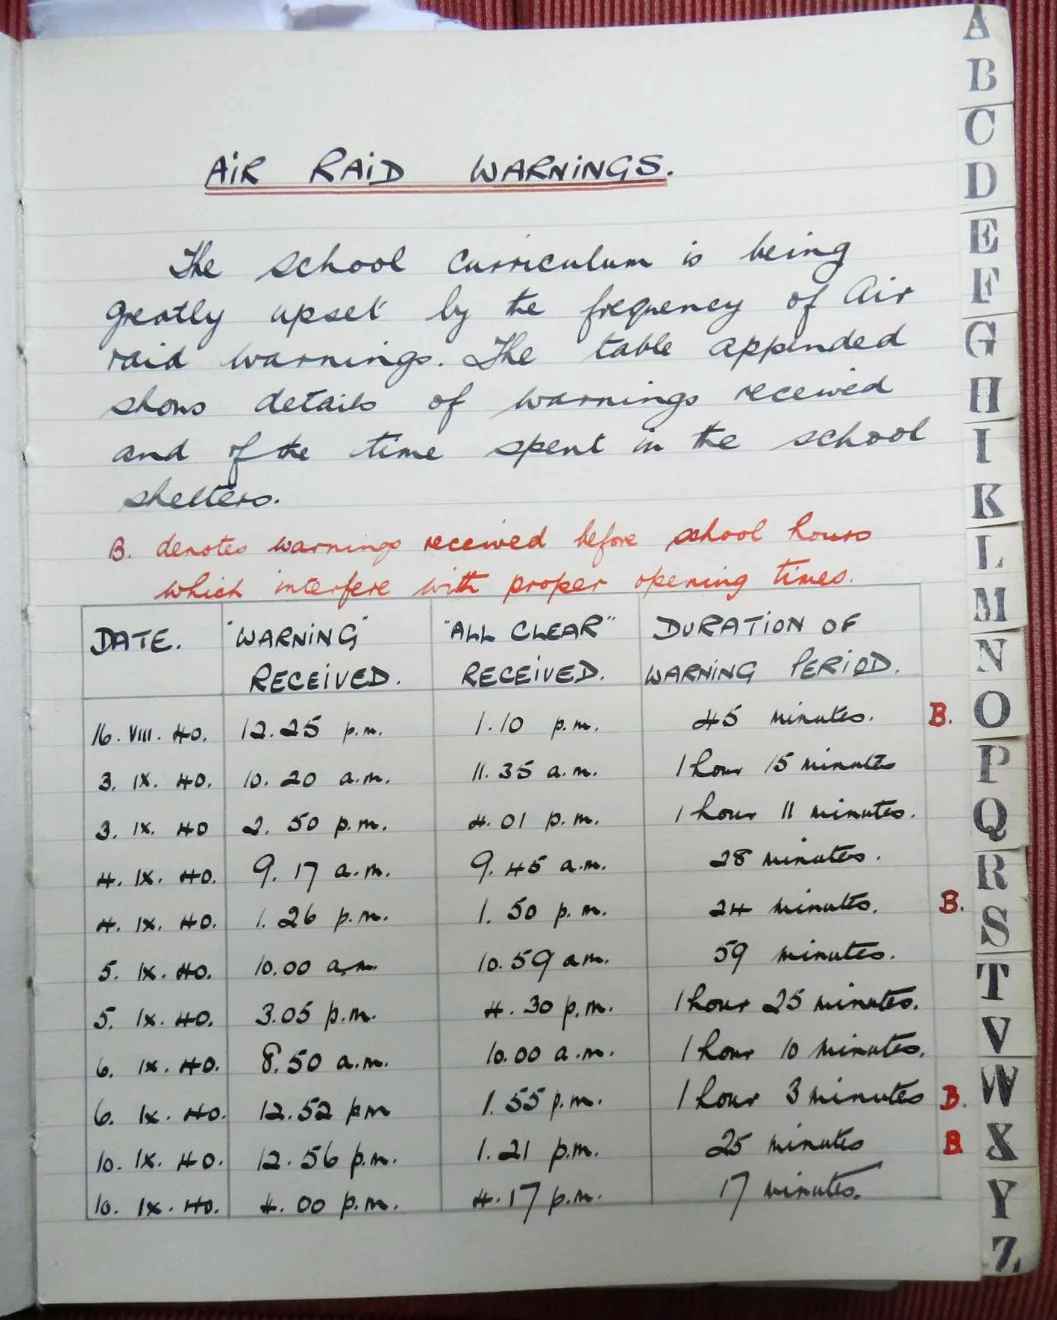 AIR RAID WARNINGS.
The school curriculum is being
greatly upset by the frequency of Air
raid warnings. The table appended
shows details of warnings received
and of the time spent in the school
shelters.
B. denotes warnings received before school hours
which interfere with proper opening times.
DATE. "WARNING" "ALL CLEAR" DURATION OF
RECEIVED. RECEIVED. WARNING PERIOD.
16. VIII. 40. 12.25 p.m. 1.10 p.m. 45 minutes. B.
3. IX. 40. 10.20 a.m. 11.35 a.m. 1 hour 15 minutes
3. IX. 40 2.50 p.m. 4.01 p.m. 1 hour 11 minutes.
4. IX. 40. 9.17 a.m. 9.45 a.m. 28 minutes.
4. IX. 40. 1.26 p.m. 1.50 p.m. 24 minutes. B.
5. IX. 40. 10.00 a.m 10.59 a.m. 59 minutes.
5. IX. 40. 3.05 p.m. 4.30 p.m. 1 hour 25 minutes.
6. IX. 40. 8.50 a.m. 10.00 a.m. 1 hour 10 minutes.
6. IX. 40. 12.52 pm 1.55 p.m. 1 hour 3 minutes B.
10. IX. 40. 12.56 p.m. 1.21 p.m. 25 minutes B
10. IX. 40. 4.00 p.m. 4.17 p.m. 17 minutes.
A
B
C
D
E
F
G
H
I
K
L
M
N
O
P
Q
R
S
T
V
W
X
Y
Z